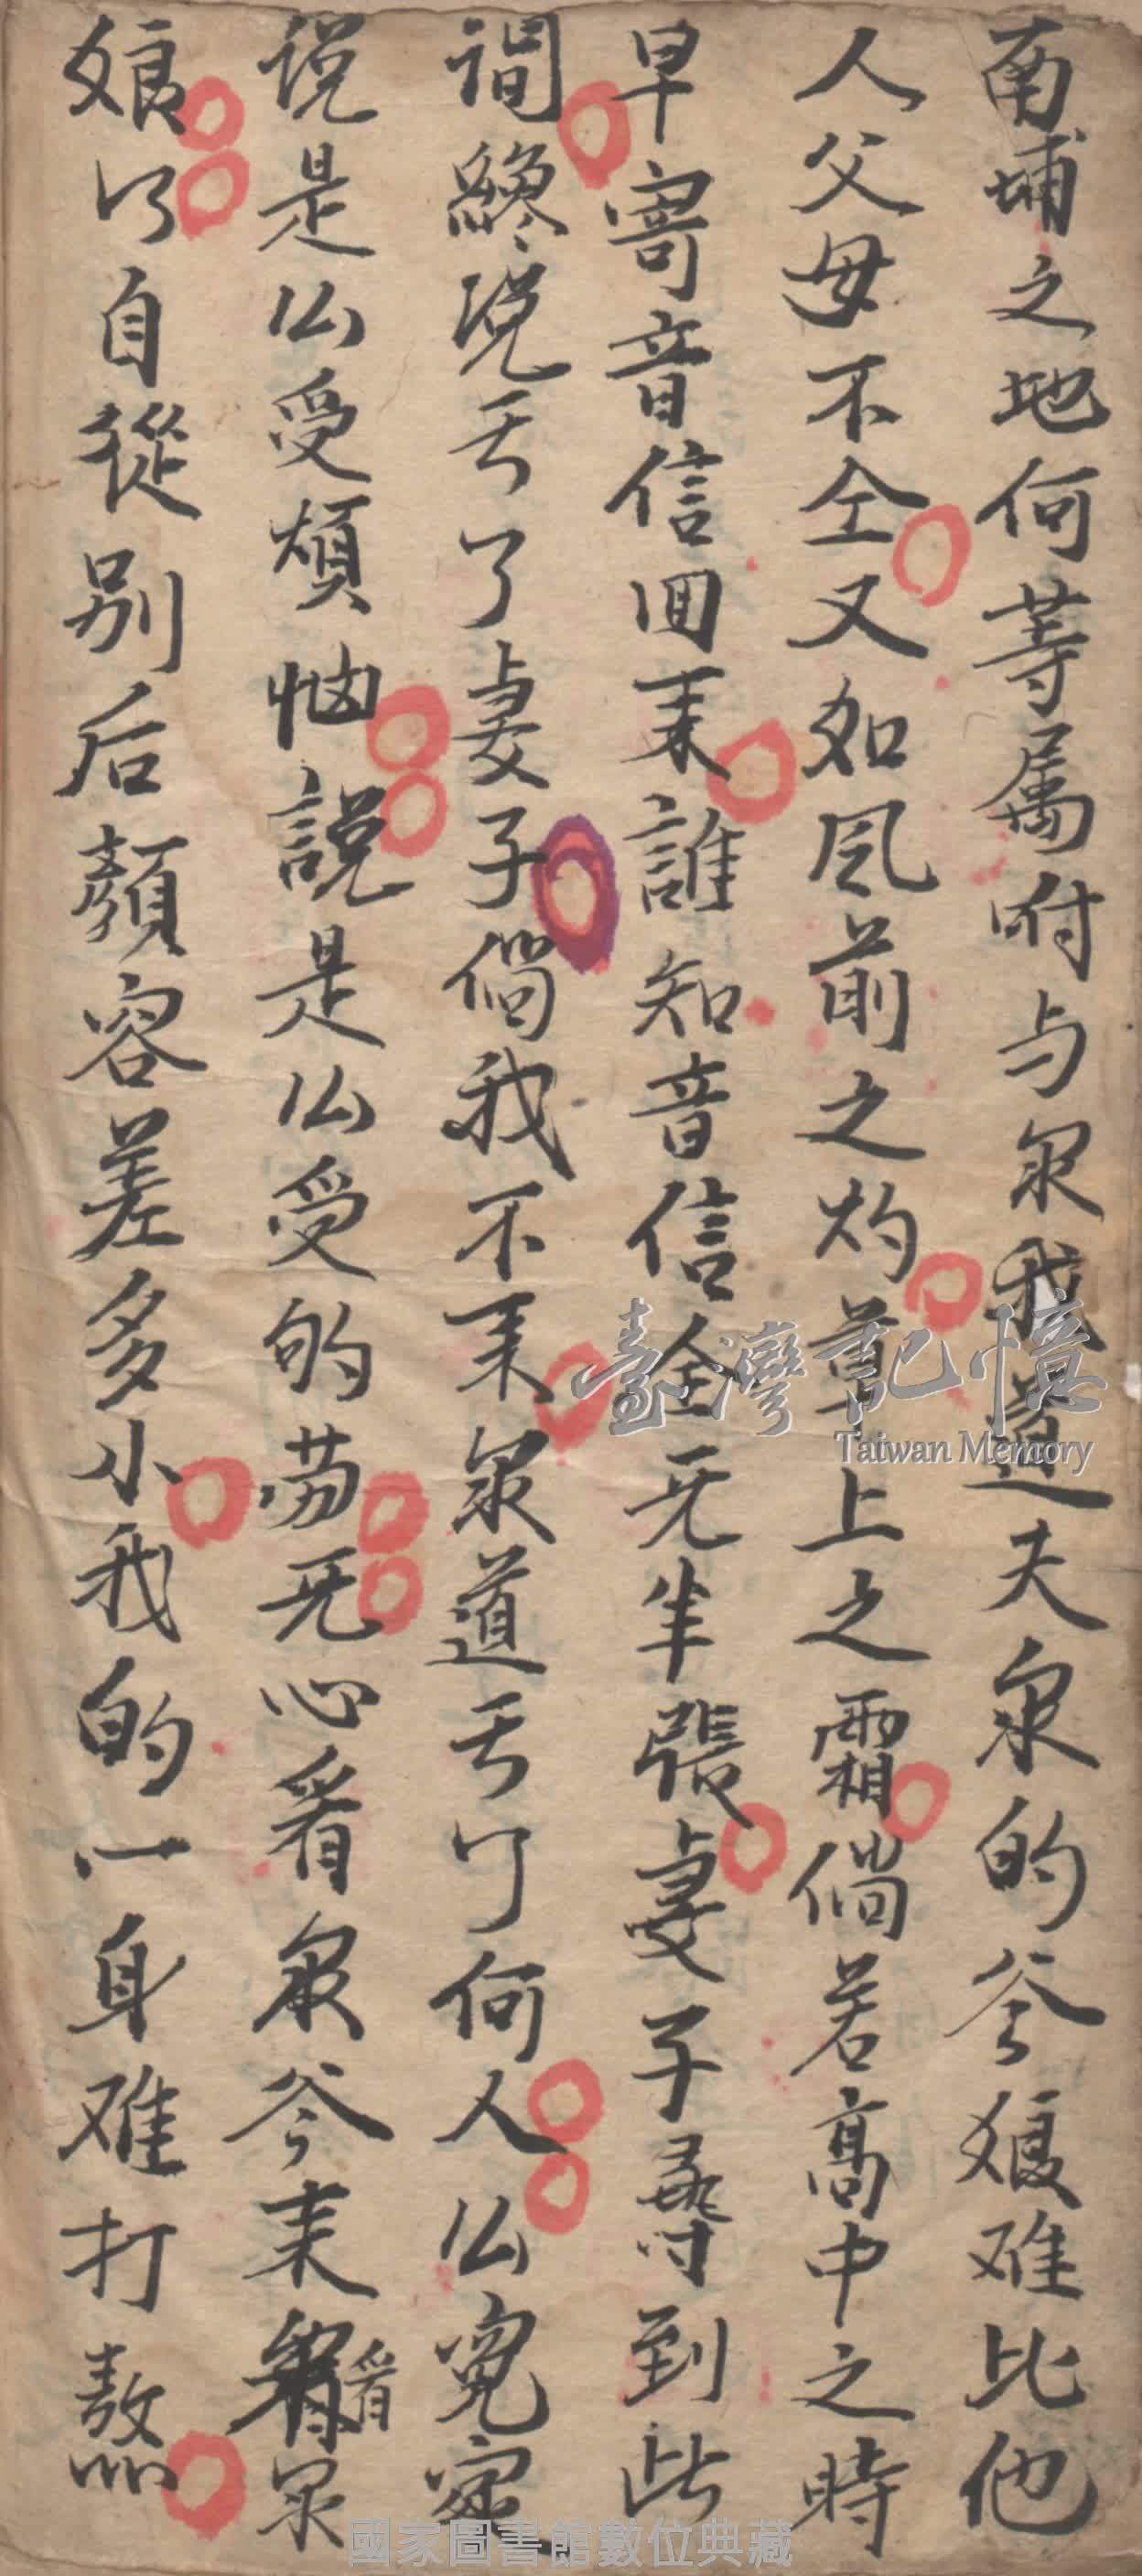 南埔之地何等属咐与泉我道夫泉的爷娘难比他
人父母不仝又如风前之灼草上之霜倘若高中之時
早寄音信囬来誰知音信全无半張妻子尋到此
間終説丢了妻子倘我不来泉道丢了何人仏冤
说是仏受煩恼説是仏受的劳无心看泉爷来看泉
娘以自從别后顏容差多小我的一身难打熬
臺灣記憶
Taiwan Memory
國家圖書館數位典藏